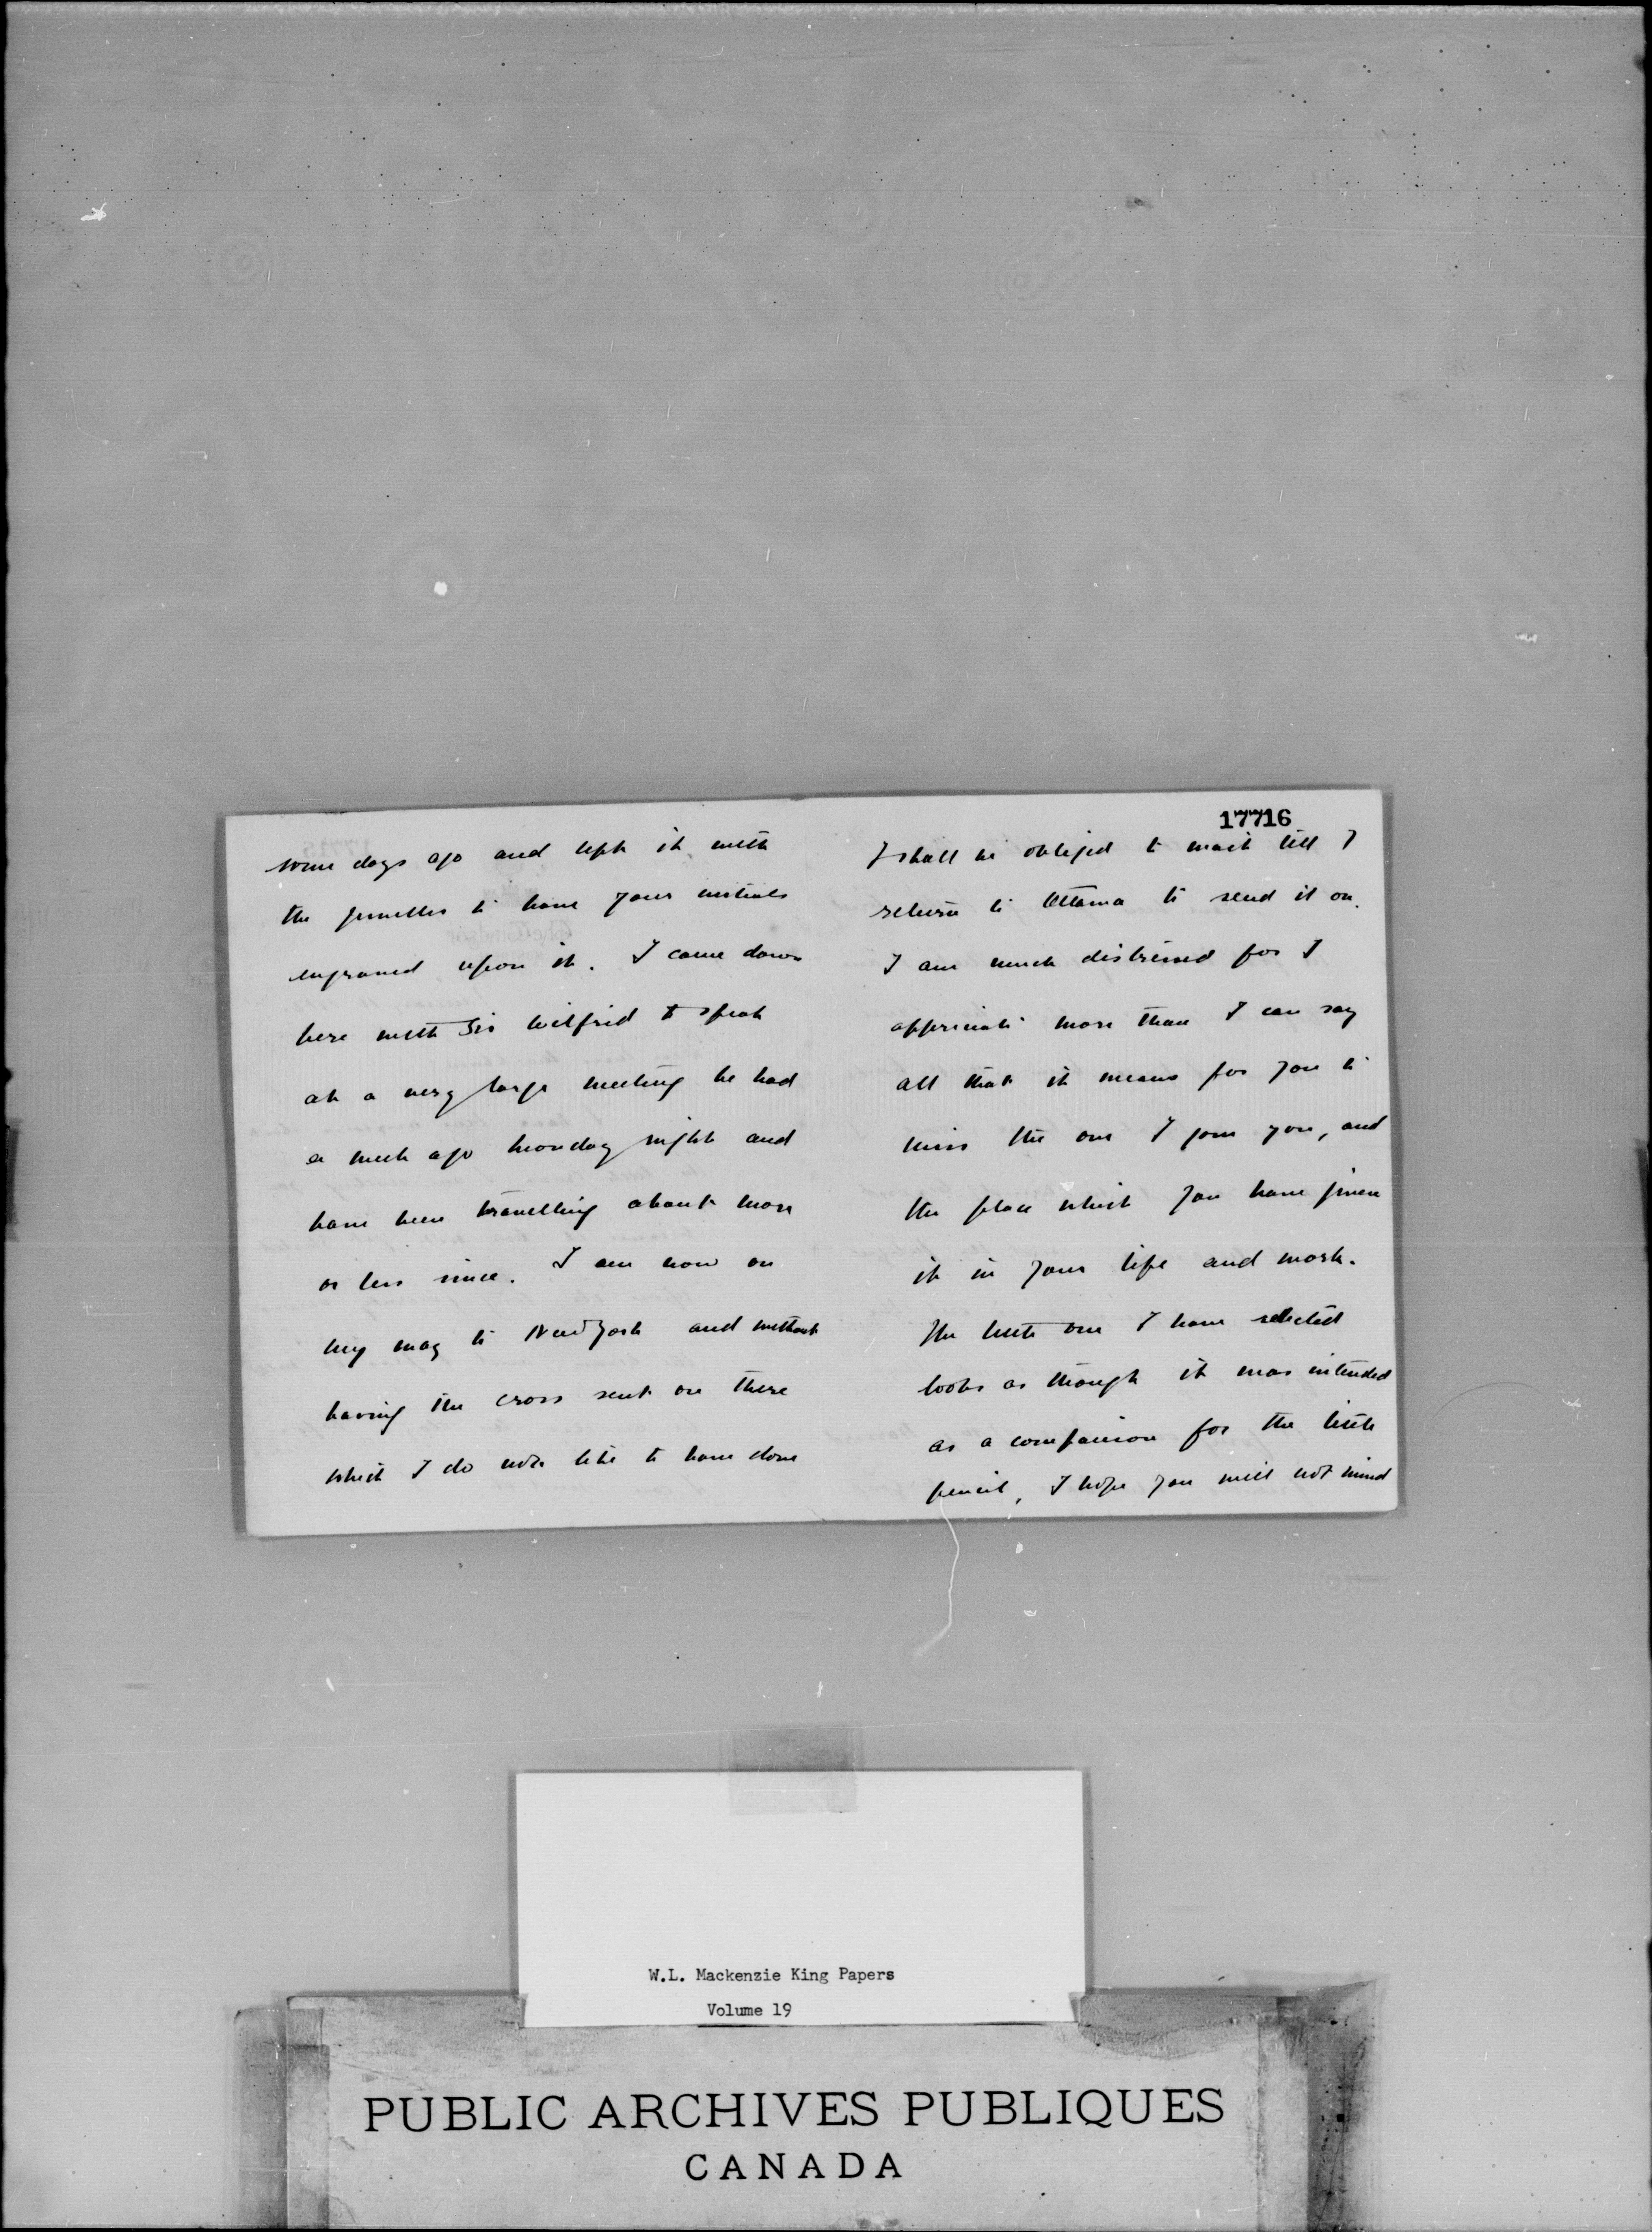 some days ago and left it with
the jeweller to have your initials
engraved upon it. I came down
here with Sir Wilfrid to speak
at a very large meeting he had
a week ago Monday night and
have been travelling about more
or less since. I am now on
my way to New York and without
having the cross sent on there
which I do not like to have done
17716
I shall be obliged to wait till I
return to Ottawa to send it on.
I am much distressed for I
appreciate more than I can say
all that it means for you to
miss the one I gave you, and
the place which you have given
it in your life and work.
The little one I have selected
looks as though it was intended
as a companion for the little
pencil, I hope you will not mind
W.L. Mackenzie King Papers
Volume 19
PUBLIC ARCHIVES PUBLIQUES
CANADA